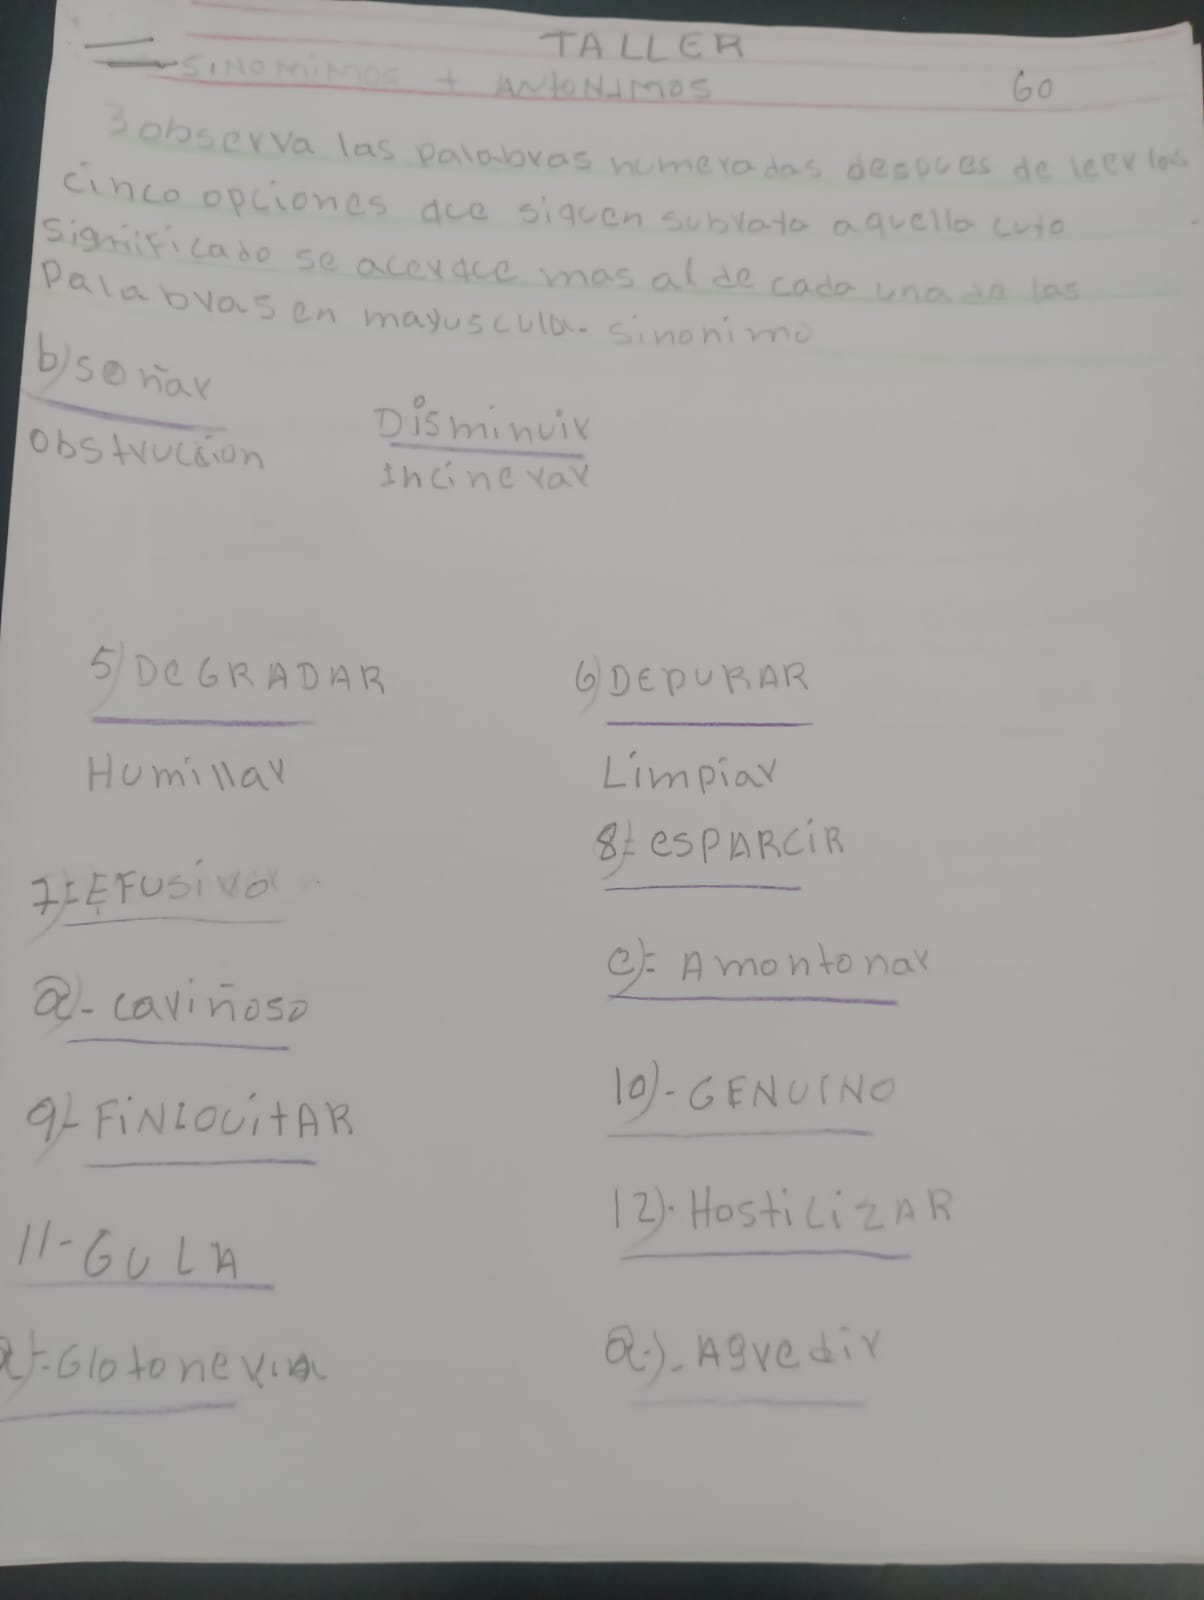 TALLER
SINOMIMOS + ANTONIMOS 60
3 observa las palabras numeradas despues de leer las
cinco opciones qce siguen subrata aquello cuto
significado se acerqce mas al de cada una de las
Palabras en mayuscula. sinonimo
b) señar
Obstrucción
Disminuir
Incinerar
5) DeGRADAR
6) DEPURAR
Humillar
Limpiar
8)- esPARCiR
7)- EFUSiVO
e)= Amontonar
a)- cariñoso
10)- GENUINO
9)- FiNiQUitAR
12)- HostiLiZAR
11- GULA
a)- Agredir
a)- Glotoneria